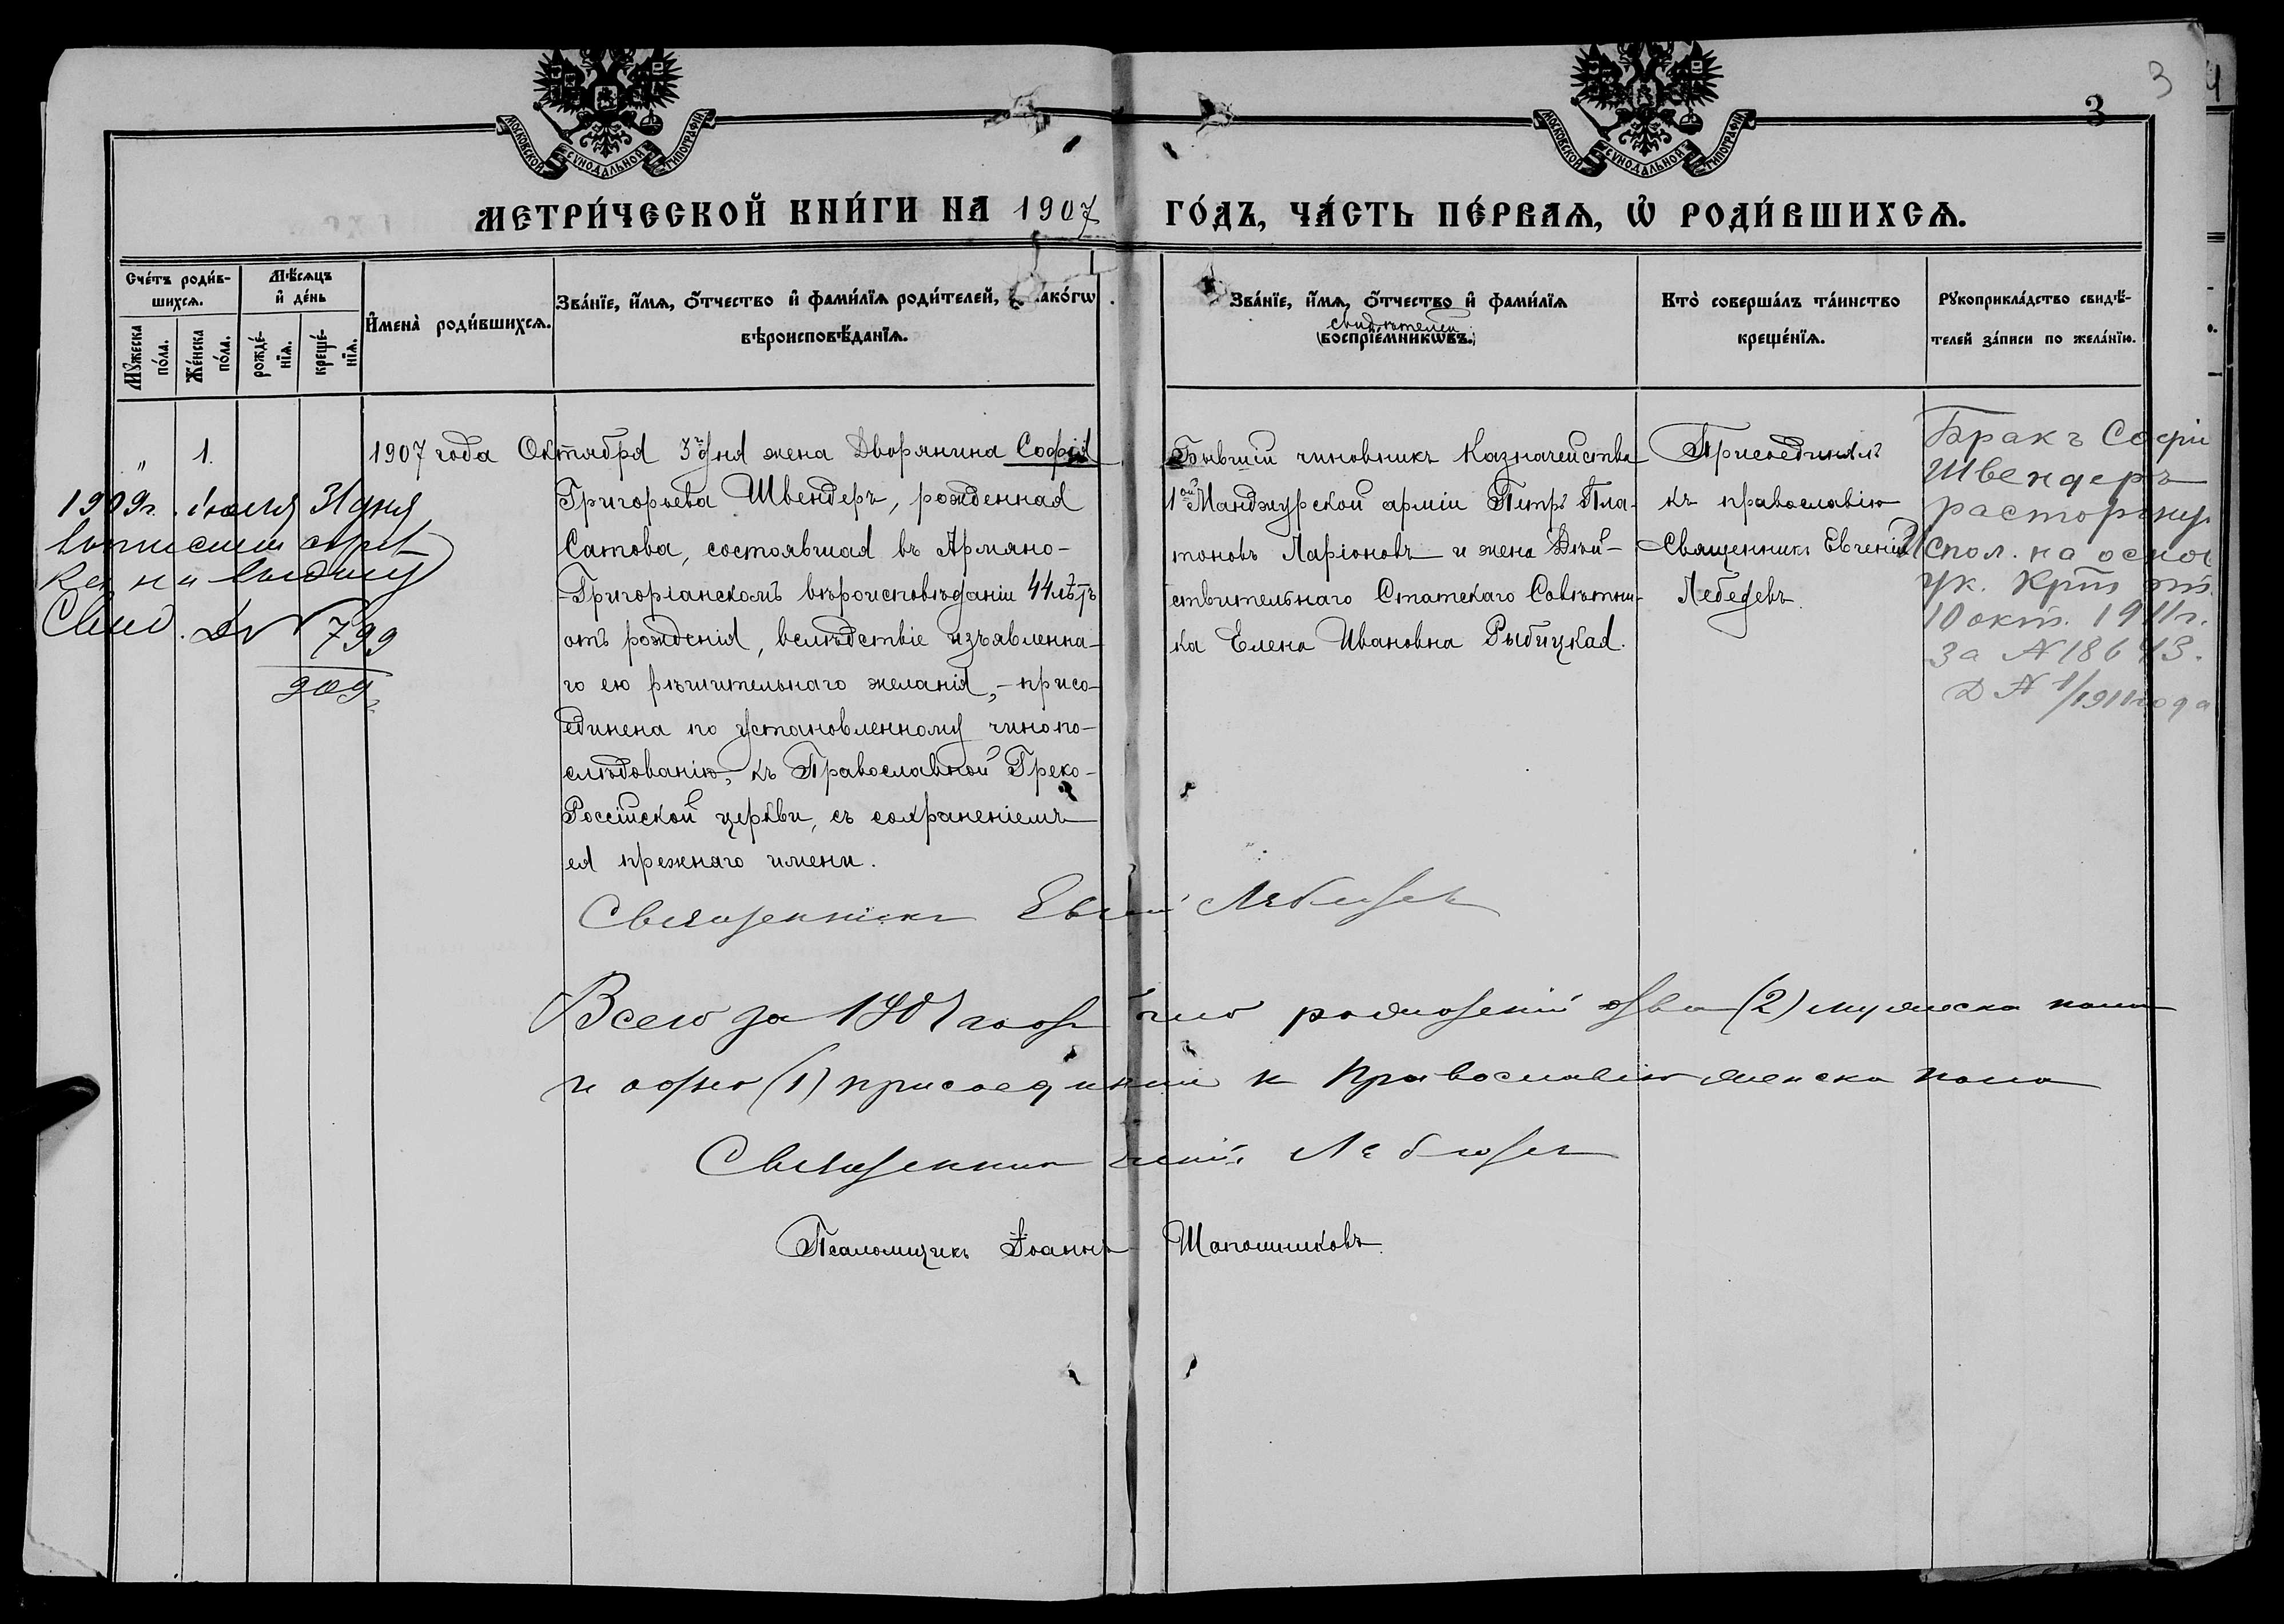 МОСКОВСКОЙ СѴНОДАЛЬНОЙ ТИПОГРАФІИ
МОСКОВСКОЙ СѴНОДАЛЬНОЙ ТИПОГРАФІИ
3
3
4
МЕТРИ́ЧЕСКОЙ КНИ́ГИ НА 1907 ГО́ДЪ, ЧА́СТЬ ПЕ́РВАѦ, Ѡ҆ РОДИ́ВШИХСѦ.
Сче́тъ роди́в-
шихсѧ.
Мꙋ́жеска
по́ла.
Же́нска
по́ла.
Мѣ́сѧцъ
и҆ де́нь
рожде́-
нїѧ.
креще́-
нїѧ.
И҆мена̀ роди́вшихсѧ.
Зва́нїе, и҆́мѧ, ѻ҆́тчество и҆ фами́лїѧ роди́телей, како́гѡ
вѣроисповѣ́данїѧ.
Зва́нїе, и҆́мѧ, ѻ҆́тчество и҆ фами́лїѧ
свидѣтелей
(воспрїе́мникѡвъ.)
Кто̀ соверша́лъ та́инство
креще́нїѧ.
Рꙋкоприкла́дство свидѣ́-
телей за́писи по жела́нїю.
" 1. 1907 года Октября 3го дня жена Дворянина Софія
Григорьева Швендеръ, рожденная
Сатова, состоявшая въ Армяно-
Григоріанскомъ вѣроисповѣданіи 44 лѣтъ
отъ рожденія, вслѣдствіе изъявленна-
го ею рѣшительнаго желанія, - присо-
единена по установленному чинопо-
слѣдованію, къ Православной Греко-
Россійской церкви, съ сохраненіемъ
ея прежняго имени.
1909 г. іюля 31 дня
выдан
Свид. № 799
909 г.
Бывшій чиновникъ Казначейства
1ой Манджурской арміи Петръ Пла-
тоновъ Ларіоновъ и жена Дѣй-
ствительнаго Статскаго Совѣтни-
ка Елена Ивановна Рыбицкая.
Присоединялъ
къ православію
Священникъ Евгеній
Лебедевъ.
Бракъ Софіи
Швендеръ
расторгнут
на основ
ук. от
10 окт. 1911 г.
за № 18643.
Д № 1/1911 года
Священникъ Евгеній Лебедевъ
Всего за 1907 годъ было рожденій два (2) мужеска пола
и одно (1) присоединеніе к Православію женска пола
Священникъ Евгеній Лебедевъ
Псаломщикъ Іоаннъ Шапошниковъ.